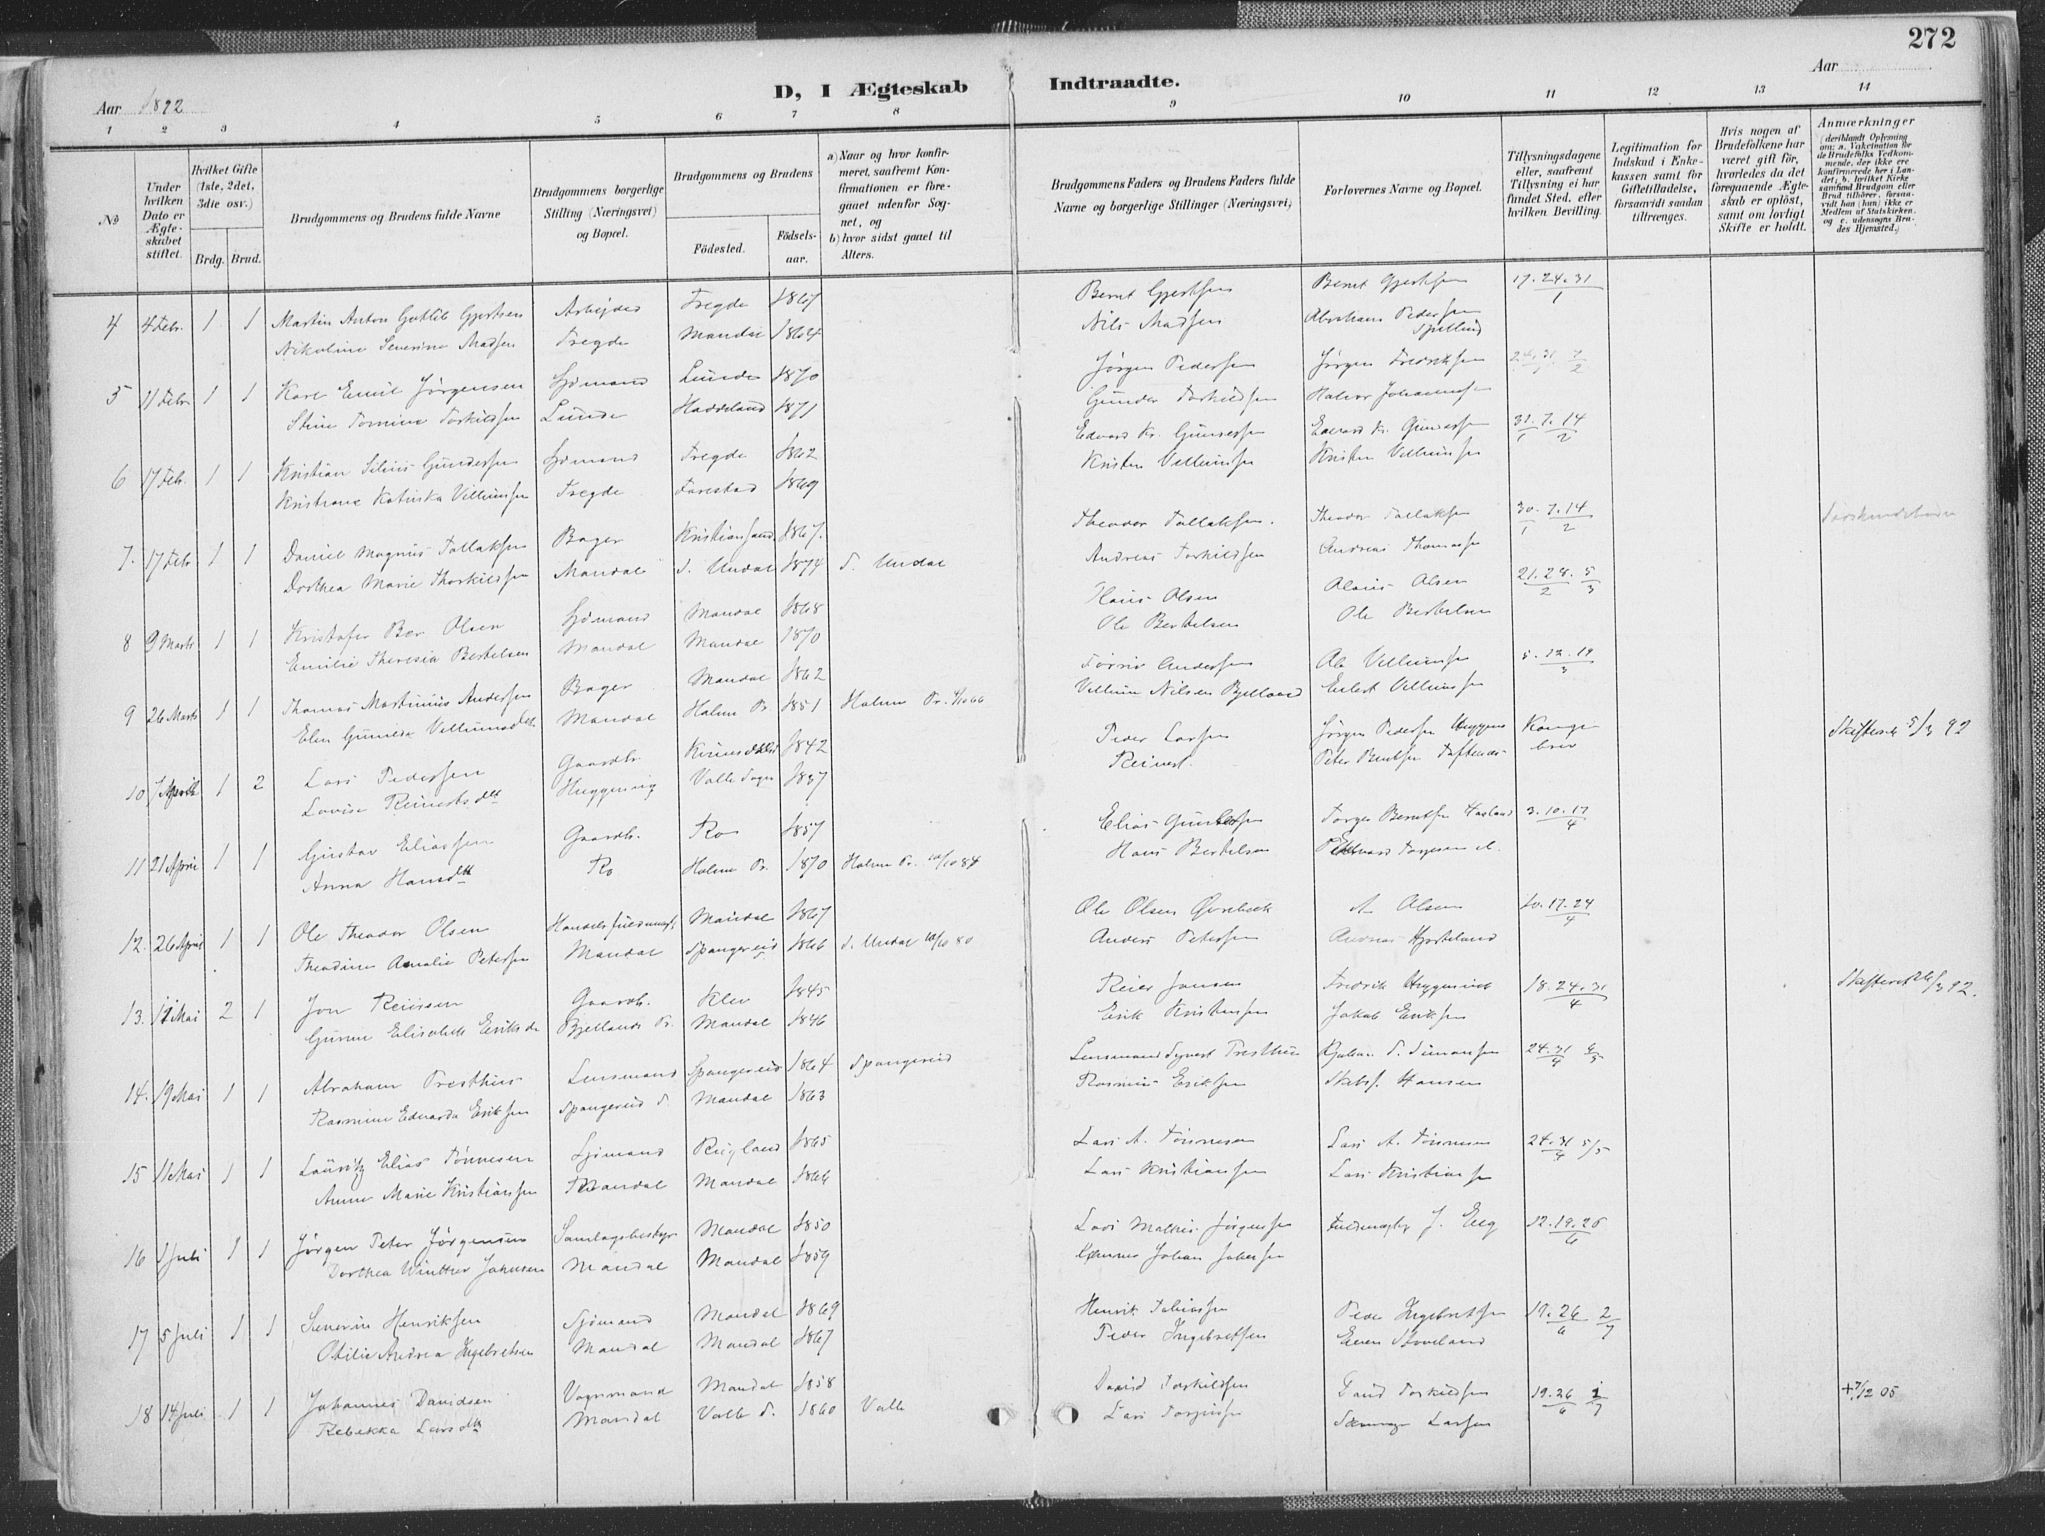 272
D, I Ægteskab Indtraadte.
Aar 1892
Aar
1 2 3 4 5 6 7 8 9 10 11 12 13 14
№
Under hvilken Dato er Ægteskabet stiftet.
Hvilket Gifte (1ste, 2det, 3die osv.)
Brdg. Brud.
Brudgommens og Brudens fulde Navne
Brudgommens borgerlige Stilling (Næringsvei) og Bopæl.
Brudgommens og Brudens
Fødested.
Fødselsaar.
a) Naar og hvor konfirmeret, saafremt Konfirmationen er foregaaet udenfor Sognet, og
b) hvor sidst gaaet til Alters.
Brudgommens Faders og Brudens Faders fulde Navne og borgerlige Stillinger (Næringsvei)
Forlovernes Navne og Bopæl.
Tillysningsdagene eller, saafremt Tillysning ei har fundet Sted, efter hvilken Bevilling.
Legitimation for Indskud i Enkekassen samt for Giftetilladelse, forsaavidt saadan tiltrænges.
Hvis nogen af Brudefolkene har været gift før, hvorledes da det foregaaende Ægteskab er opløst, samt om lovligt Skifte er holdt.
Anmærkninger
(deriblandt Oplysning om: a. Vakcination for de Brudefolks Vedkommende, der ikke ere konfirmerede her i Landet; b. hvilket Kirkesamfund Brudgom eller Brud tilhører, forsaavidt han (hun) ikke er Medlem af Statskirken, og c. udensogns Brudes Hjemsted.)
4 4 Febr. 1 1 Martin Anton Gotlib Gjertsen Arbejder Tregde 1867 Bernt Gjertsen Bernt Gjertsen 17.24.31/1
Nikoline Severine Madsen Tregde Mandal 1864 Nils Madsen Abraham Pedersen
5 11 Febr 1 1 Karl Emil Jørgensen Sjømand Lunde 1870 Jørgen Pedersen Jørgen Fredriksen 24.31/1 7/2
Stine Tomine Torkildsen Lunde Haddeland 1871 Gunder Torkildsen Halvor Johannesen
6 17 Febr. 1 1 Kristian Gundersen Sjømand Tregde 1862 Edvard Kr. Gundersen Edvard Kr. Gundersen 31/1 7.14/2
Kristiane Katinka Villumsen Tregde Farestad 1869 Kristen Villumsen Kristen Villumsen
7. 17 Febr 1 1 Daniel Magnus Tallaksen Bager Kristiansand 1867. Theodor Tallaksen. Theodor Tallaksen 30/1 7.14/2
Dorthea Marie Thorkildsen Mandal S. Undal 1874 S. Undal Andreas Torkildsen Andreas Thomassen
8 9 Marts 1 1 Kristofer Olsen Sjømand Mandal 1868 Hans Olsen Olsen 21.28/2 5/3
Emilie Theresia Bertelsen Mandal Mandal 1870 Ole Bertelsen Ole Bertelsen
9 26 Marts 1 1 Thomas Martinius Andersen Bager Mandal 1862 Andersen Ole Villumsen 5.12.19/3
Elen Villumsdtt Mandal Holme Pr. 1851 Holme Pr. 4/10 66 Villum Nilsen Bjelland Villumsen
10 7 April 1 2 Lars Pedersen Gaardbr. 1842 Peder Larsen Jørgen Pedersen Kongebrev Skifteret 5/3 92
Lovise Reinertsdtt Valle Sogn 1837 Reinert. Peter Berntsen
11 21 April 1 1 Gustav Eliassen Gaardbr. Ro 1857 Elias Gundersen Torger Berntsen 3.10.17/4
Anna Hansdtt Ro Holme Pr. 1870 Holme Pr. 84 Hans Bertelsen
12. 26 April 1 1 Ole Theodor Olsen Mandal 1867 Ole Olsen Olsen 10.17.24/4
Theodine Amalie Petersen Mandal Spangereid 1866 S. Undal 80 Anders Petersen Andreas Hjorteland
13. Mai 2 1 Jon Reiersen Gaardbr. Klev 1845 Reier Jonsen Fredrik 18.24.31/4 Skifteret 26/3 92.
Elisabeth Eriksdtt Bjellands Pr. Mandal 1846 Erik Kristensen Jakob Eriksen
14. 9 Mai 1 1 Abraham Presthus Lensmand Spangereid 1864 Spangereid Lensmand Presthus S. Simonsen 24.31/4
Rasmine Edvarda Eriksen Spangereid S. Mandal 1863 Rasmus Eriksen Skibsf. Hansen
15 11 Mai 1 1 Lauritz Elias Tønnesen Sjømand 1865 Lars A. Tønnesen Lars A. Tønnesen 24.31/4 5/5
Anne Marie Kristiansen Mandal Mandal 1866 Lars Kristiansen Lars Kristiansen
16 1 Juli 1 1 Jørgen Peter Jørgensen Samlagsbestyr Mandal 1850 Lars Mathis Jørgensen Fuldmægtig J. Eeg 12.19.26/6
Dorthea Winther Johnsen Mandal Mandal 1859 Johan
17 5 Juli 1 1 Severin Henriksen Sjømand Mandal 1869 Henrik Tobiassen Peder Ingebretsen 19.26/6 2/7
Otilie Andrea Ingebretsen Mandal Mandal 1867 Peder Ingebretsen Støveland
18 14 Juli 1 1 Johannes Davidsen Vognmand Mandal 1858 David Torkildsen David Torkildsen 19.26/6 1/7 + 7/12 05
Rebekka Larsdtt Mandal Valle S. 1860 Valle Lars Larsen